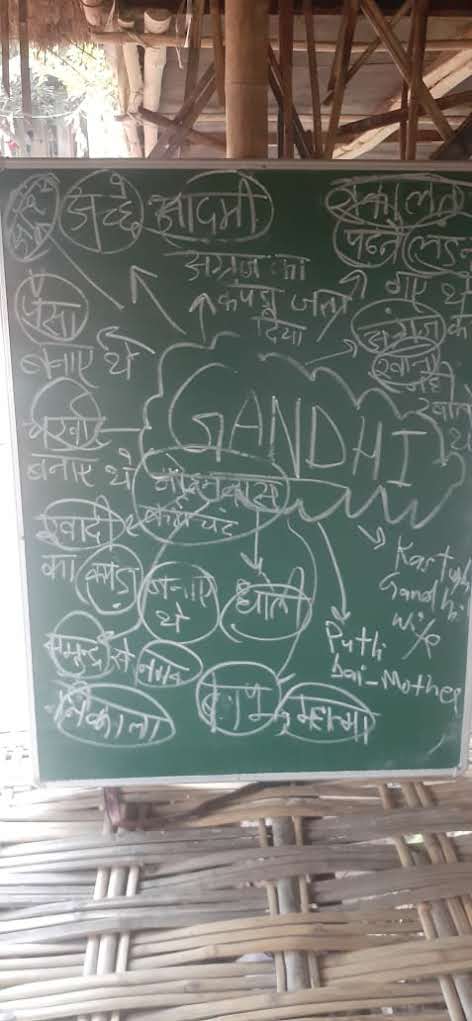 अच्छे आदमी
वकालत
पढ़ने लंडन
गए थे
अंग्रेज का
कपड़ा जला
दिया
अंग्रेज का
खाना
नहीं
खाते
थे
पैसा
बनाए थे
चरखा
बनाए थे
GANDHI
मोहनदास
करमचंद
खादी
का कपड़ा बनाए
थे
धोती
Kasturba
Gandhi
wife
Putli
bai-Mother
समुद्र से नमक
निकाला
बापू महात्मा